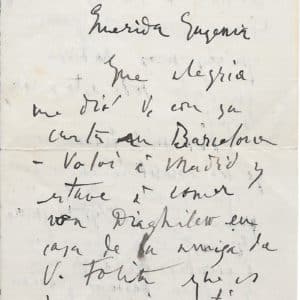 Querida Eugenia
Que alegria
me dió V. con su
carta en Barcelona
- Volví á Madrid y
estuve á comer
con Diaghilew en
casa de la amiga de
V. Tolita que es